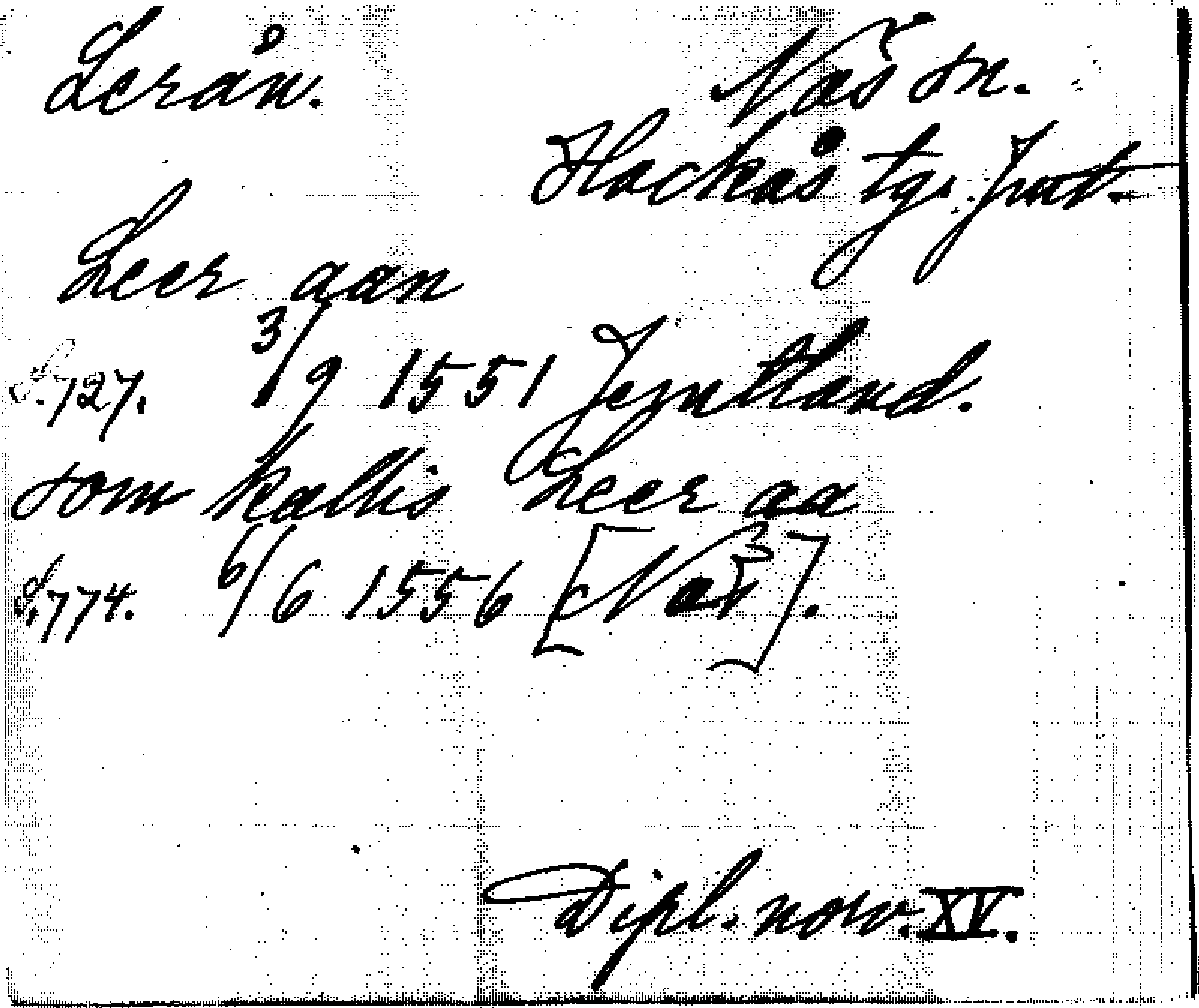 Lerån. Näs sn.
Hackås tgs. Jmt.
Leer aan
S. 727. 3/9 1551 Jemtland.
som kallis Leer aa
S. 774. 6/6 1556 [Näs].
Dipl. norv. XV.